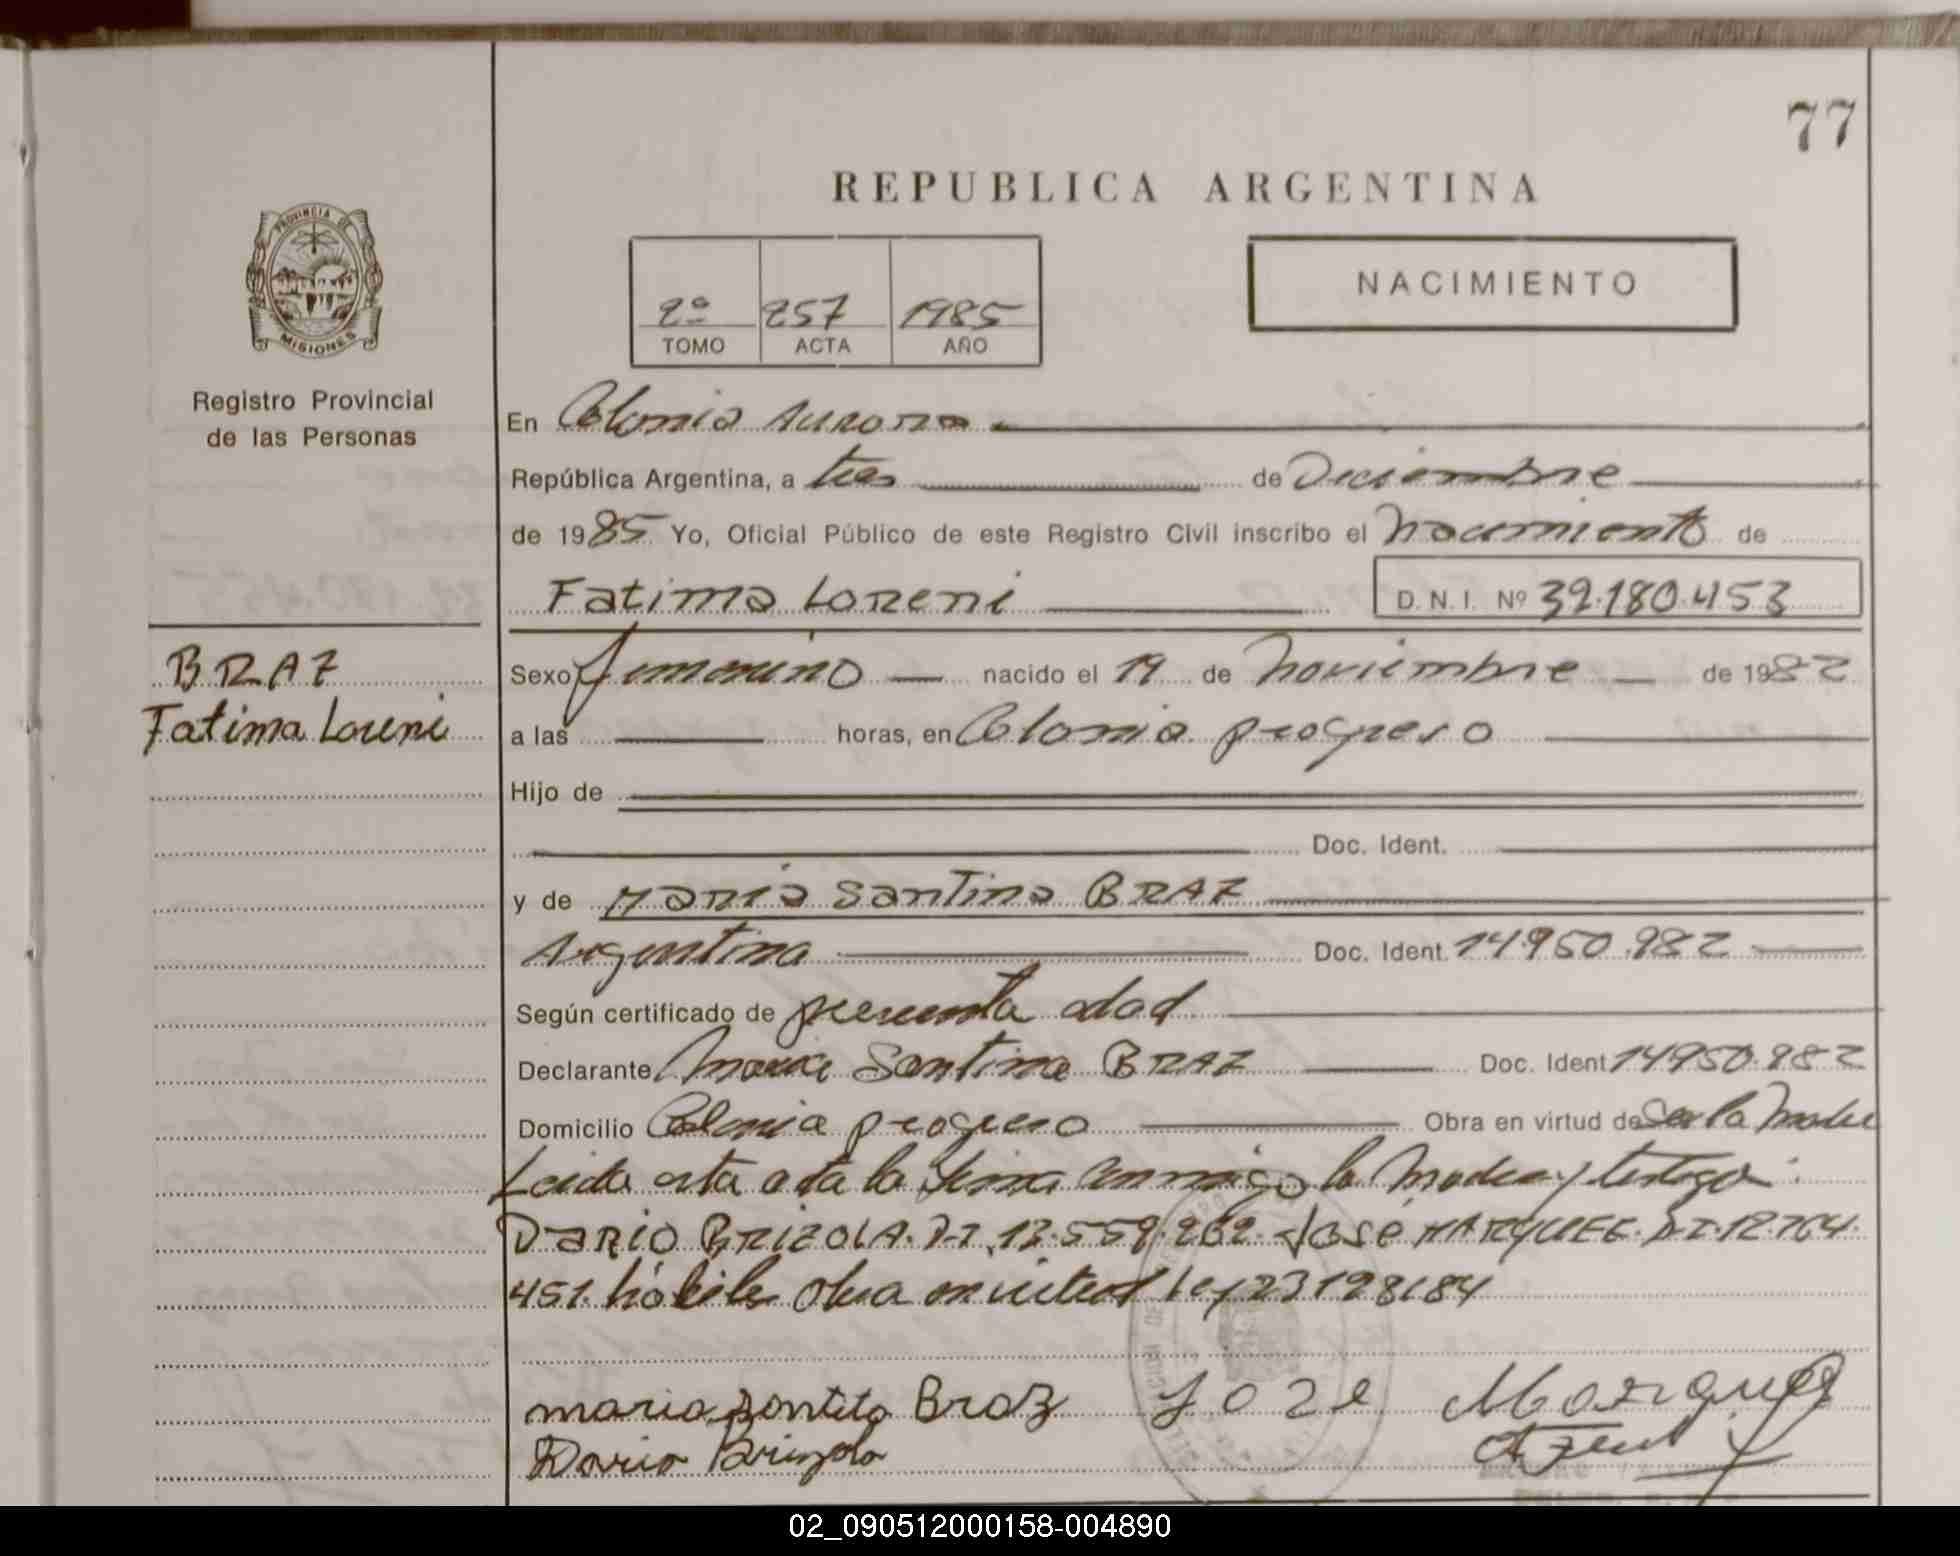 77
REPUBLICA ARGENTINA
PROVINCIA DE
MISIONES
NACIMIENTO
2º 257 1985
TOMO ACTA AÑO
Registro Provincial
de las Personas
En Colonia Aurora
República Argentina, a tres de Diciembre
de 1985 Yo, Oficial Público de este Registro Civil inscribo el Nacimiento de
Fatima Loreni D.N.I. Nº 32.180.453
BRAZ
Fatima Loreni
Sexo femenino nacido el 19 de Noviembre de 1982
a las horas, en Colonia progreso
Hijo de
Doc. Ident.
y de Maria Santina BRAZ
Argentina Doc. Ident. 14.950.982
Según certificado de presunta edad
Declarante Maria Santina BRAZ Doc. Ident 14950.982
Domicilio Colonia progreso Obra en virtud de Ser la Madre
Leida esta acta la firma conmigo la Madre y testigo:
Dario BRIZOLA. D.I. 13.559.262. José MARQUEE. D.I. 12.764.
451. hábiles Obra en virtud ley 23198/84
maria santita Braz Joze Marques
Dario Brizola
02_090512000158-004890